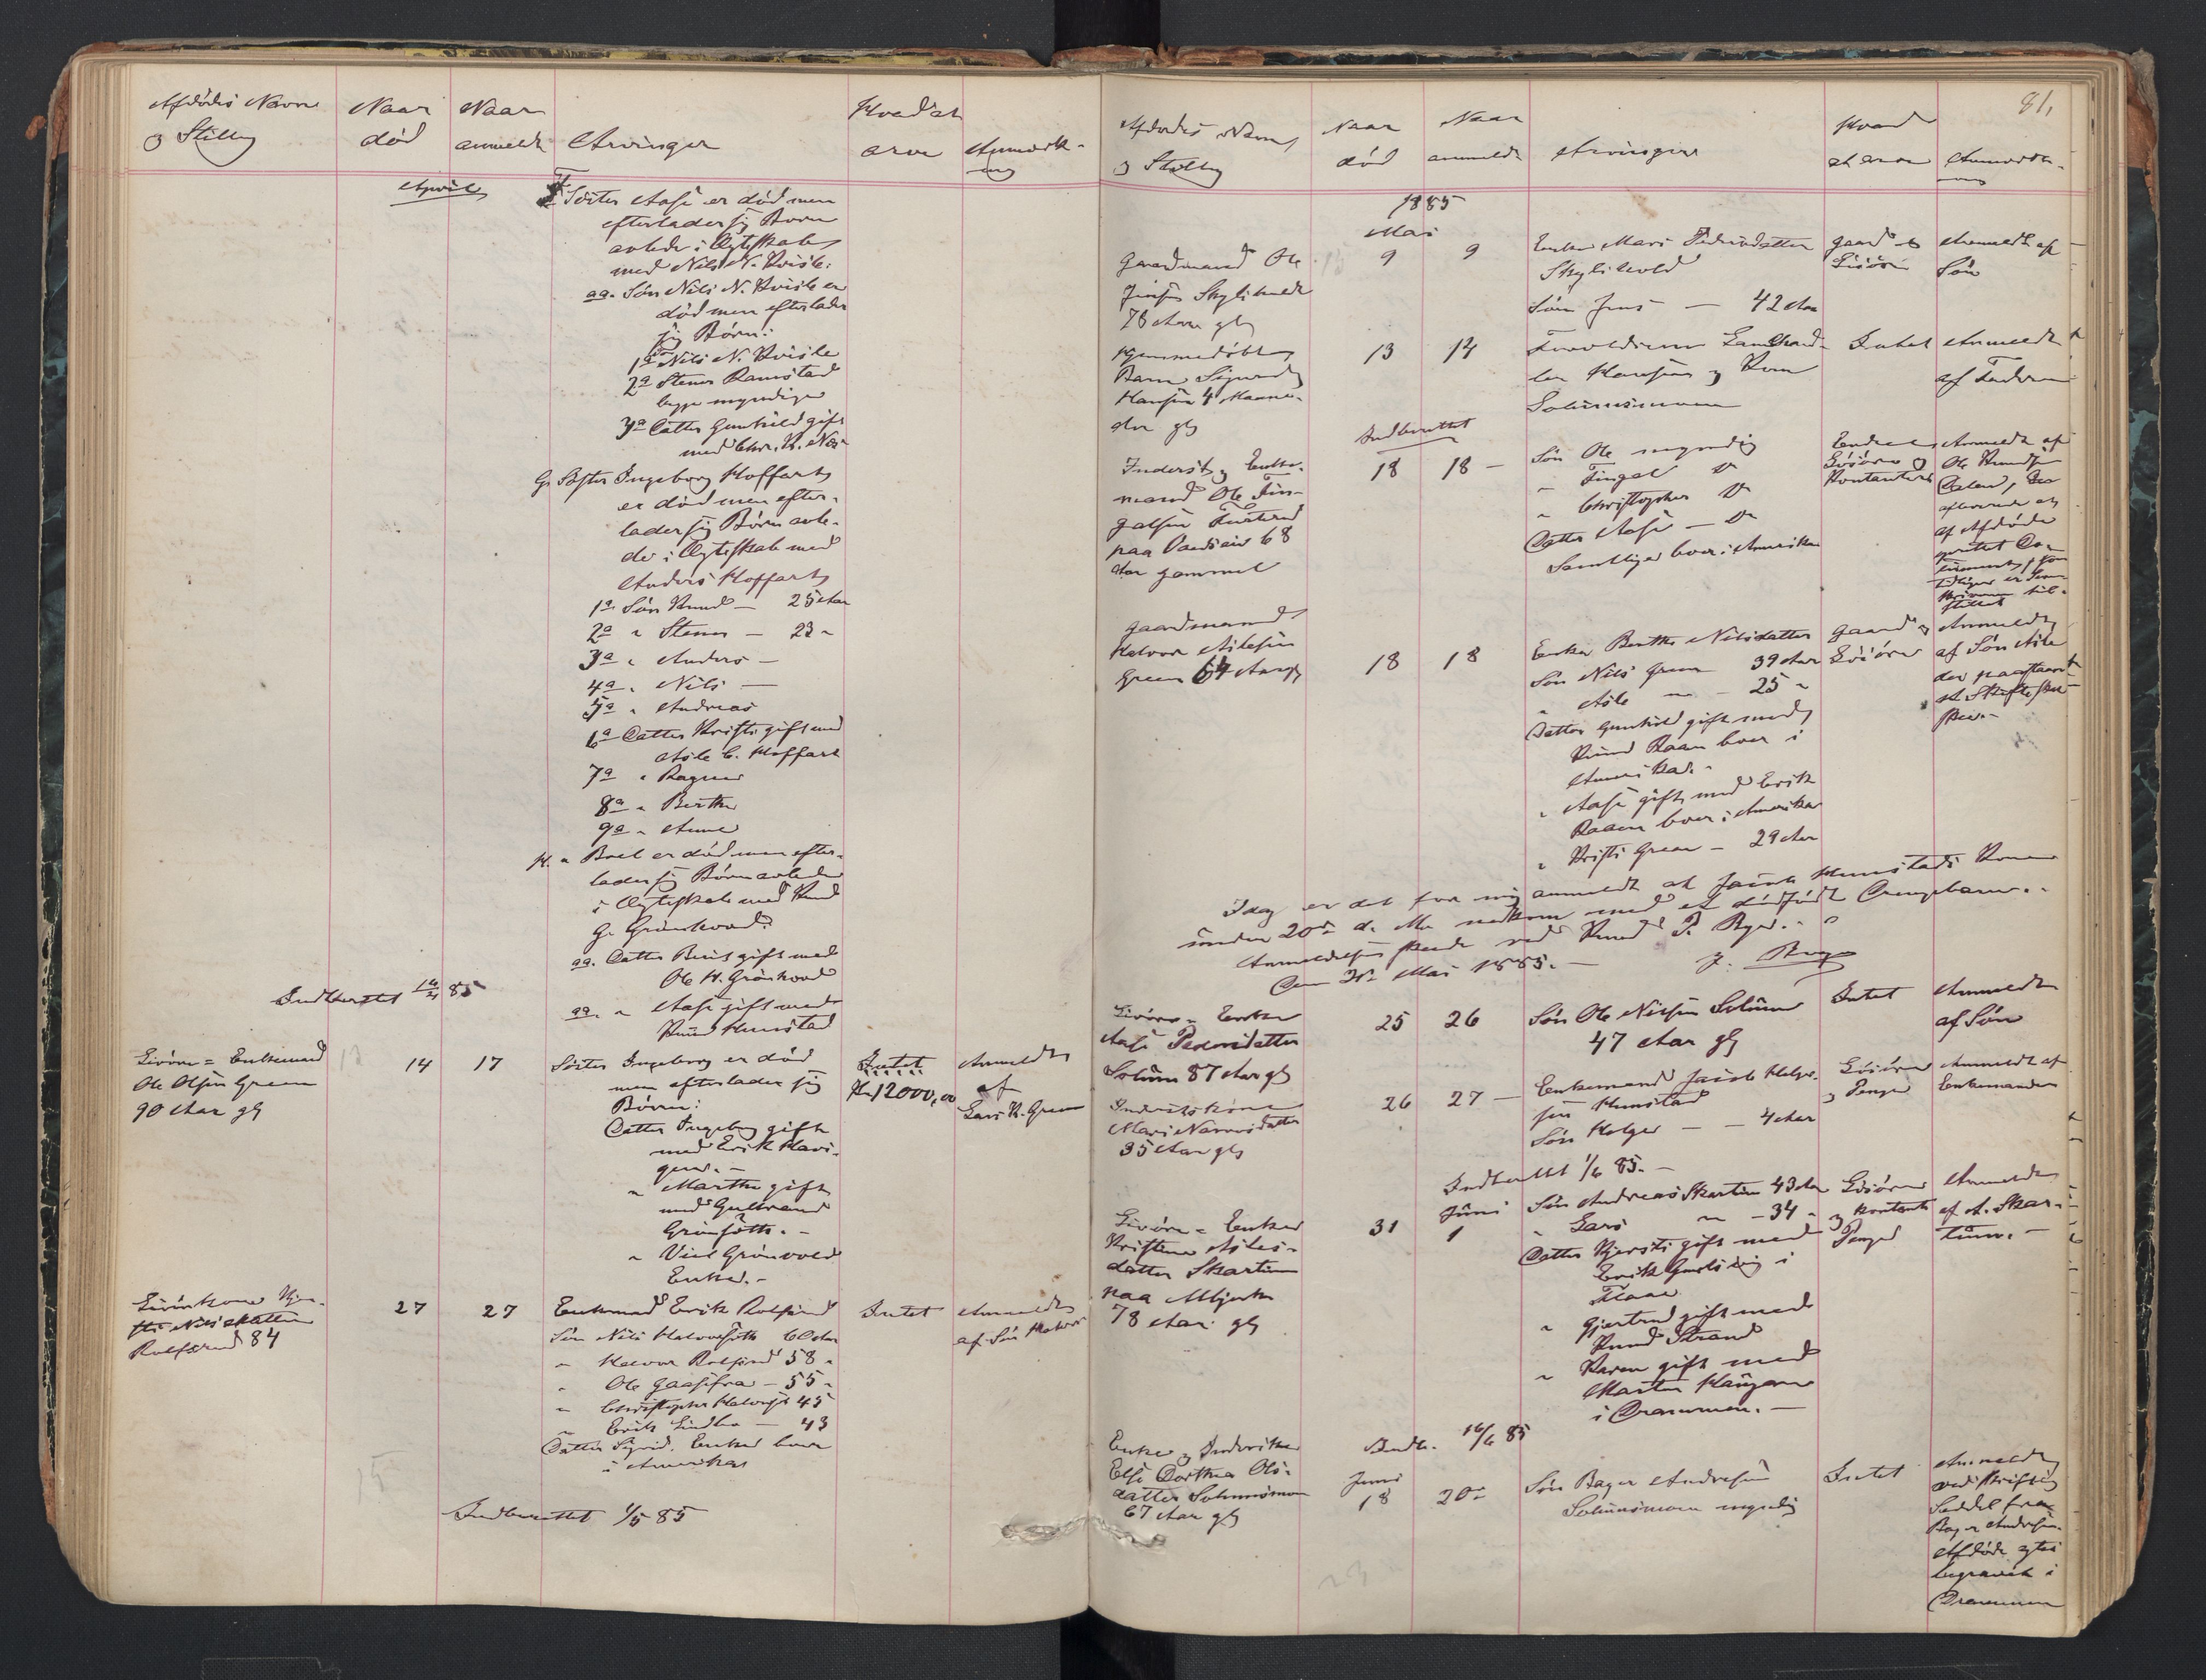 Afdødes Navn
og Stilling
Naar
død
Naar
anmeldt
Arvinger
Hvad at
arve
Anmærk-
ning
April
F. Søster Aase er død men
efterlader sig Børn
avlede i Ægteskab
med Nils N. Kvisle:
aa. Søn Nils N. Kvisle er
død men efterlader
sig Børn:
1a Nils N. Kvisle
2a Stener Ramstad
begge myndige
3a Datter Gunhild gift
med Chr. K. Næs
G. Søster Ingeborg Hoffart
er død men efter-
lader sig Børn avle-
de i Ægteskab med
Anders Hoffart
1a Søn Knud — 25 Aar
2a " Stener — 23 "
3a " Anders —
4a " Nils —
5a " Andreas
6a Datter Kristi gift med
Asle C. Hoffart
7a " Ragne
8a " Berthe
9a " Anne
H. " Boel er død men efter-
lader sig Børn avlede
i Ægteskab med Knud
G. Grønhovd:
aa. Datter Berit gift med
Ole H. Grønhovd
aa. " Aase gift med
Knud Hunstad
Indberettet 16/4 85
Livøre = Enkemand
Ole Olsen Green
90 Aar gl
14
17
Søster Ingeborg er død
men efterlader sig
Børn:
Datter Ingeborg gift
med Erik Havi-
gerud. —
" Marthe gift
med Gulbrand
" Viel Grønvold
Enke. —
Intet
Kr 12000,00
Anmeldt
af
Lars K. Green
Nilsdatter
Rolfsrud 84
27
27
Enkemand Erik Rolfsrud
Søn Nils 60 Aar
" Halvor Rolfsrud 58 "
" Ole — 55 "
" Christopher 45
" Erik — 43
Datter Sigrid, Enke boer
i Amerika
Intet
Anmeldt
af Søn Halvor
Indberettet 1/5 85
81,
Afdødes Navn
og Stilling
Naar
død
Naar
anmeldt
Arvinger
Hvad
at arve
Anmærk-
ning
1885
Mai
Gaardmand Ole
78 Aar gl
9
9
Enke Mari Pedersdatter
Søn Jens — 42 Aar
Gaard og
Løsøre
Anmeldt af
Søn
Hjemmedøbt
Barn Sigurd
Hansen 4 Maane-
der gl
13
14
Forældrene Landhand-
ler Hansen og Kone
Solumsmoen
Intet
Anmeldt
af Faderen
Indberettet
Inderst og Enke-
mand Ole Fin-
galsen
paa 68
Aar gammel
18
18 —
Søn Ole myndig
" Fingal Do
" Christopher Do
Datter Aase — Do
Samtlige boer i Amerika
Løsøre og
Kontanter
Anmeldt af
Ole Knudsen
afleverede et
af Afdøde
oprettet Do-
cument, som
tidligere er Sorens-
kriveren til-
stillet
Gaardmand
Halvor Aslesen
Green 64 Aar gl
18
18
Enke Berthe Nilsdatter
Søn Nils Green 39 Aar
" Asle " — 25 "
Datter Gunhild gift med
Knud Raaen boer i
Amerika. "
" Aase gift med Erik
Raaen boer i Amerika
" Kristi Green — 29 Aar
Gaard og
Løsøre
Anmeldt
af Søn Asle
der paastaar
at Skifte sker
Idag er det for mig anmeldt at Jacob Hunstads Kone
under 20de d. M. nedkom med et dødfødt Drengebarn. —
Anmeldelsen skede ved Knud P. Bye. —
Den Mai 1885. —
Livøre = Enke
Aase Pedersdatter
Solum 87 Aar gl
25
26
Søn Ole Nilsen Solum
47 Aar gl
Intet
Anmeldt
af Søn
Inderstkone
Mari Narvesdatter
35 Aar gl
26
27 —
Enkemand Jacob Helge-
sen Hunstad
Søn Helge — — 4 Aar
Løsøre
og Penge
Anmeldt af
Enkemanden
Indberettet 1/6 85. —
Livøre = Enke
Kristine Asles-
datter Skartum
paa
78 Aar gl
31
Juni
1
Søn Andreas Skartum 43 Aar
" Lars " — 34 "
Datter Kjersti gift med
Erik i
Flaa
" Gjertrud gift med
Knud Strand
" Karen gift med
Martin Haugen
i Drammen. —
Løsøre
og kontante
Penge
Anmeldt
af A. Skar-
tum. —
Indb. 16/6 85
Enke og Inderste
Else Dorthea Ols-
datter Solumsmoen
67 Aar gl
Juni
18
20de
Søn Bager Andresen
Solumsmoen myndig
Intet
Anmeldt
ved skriftlig
Seddel fra
Bager Andresen.
Afdøde agtes
begravet i
Drammen